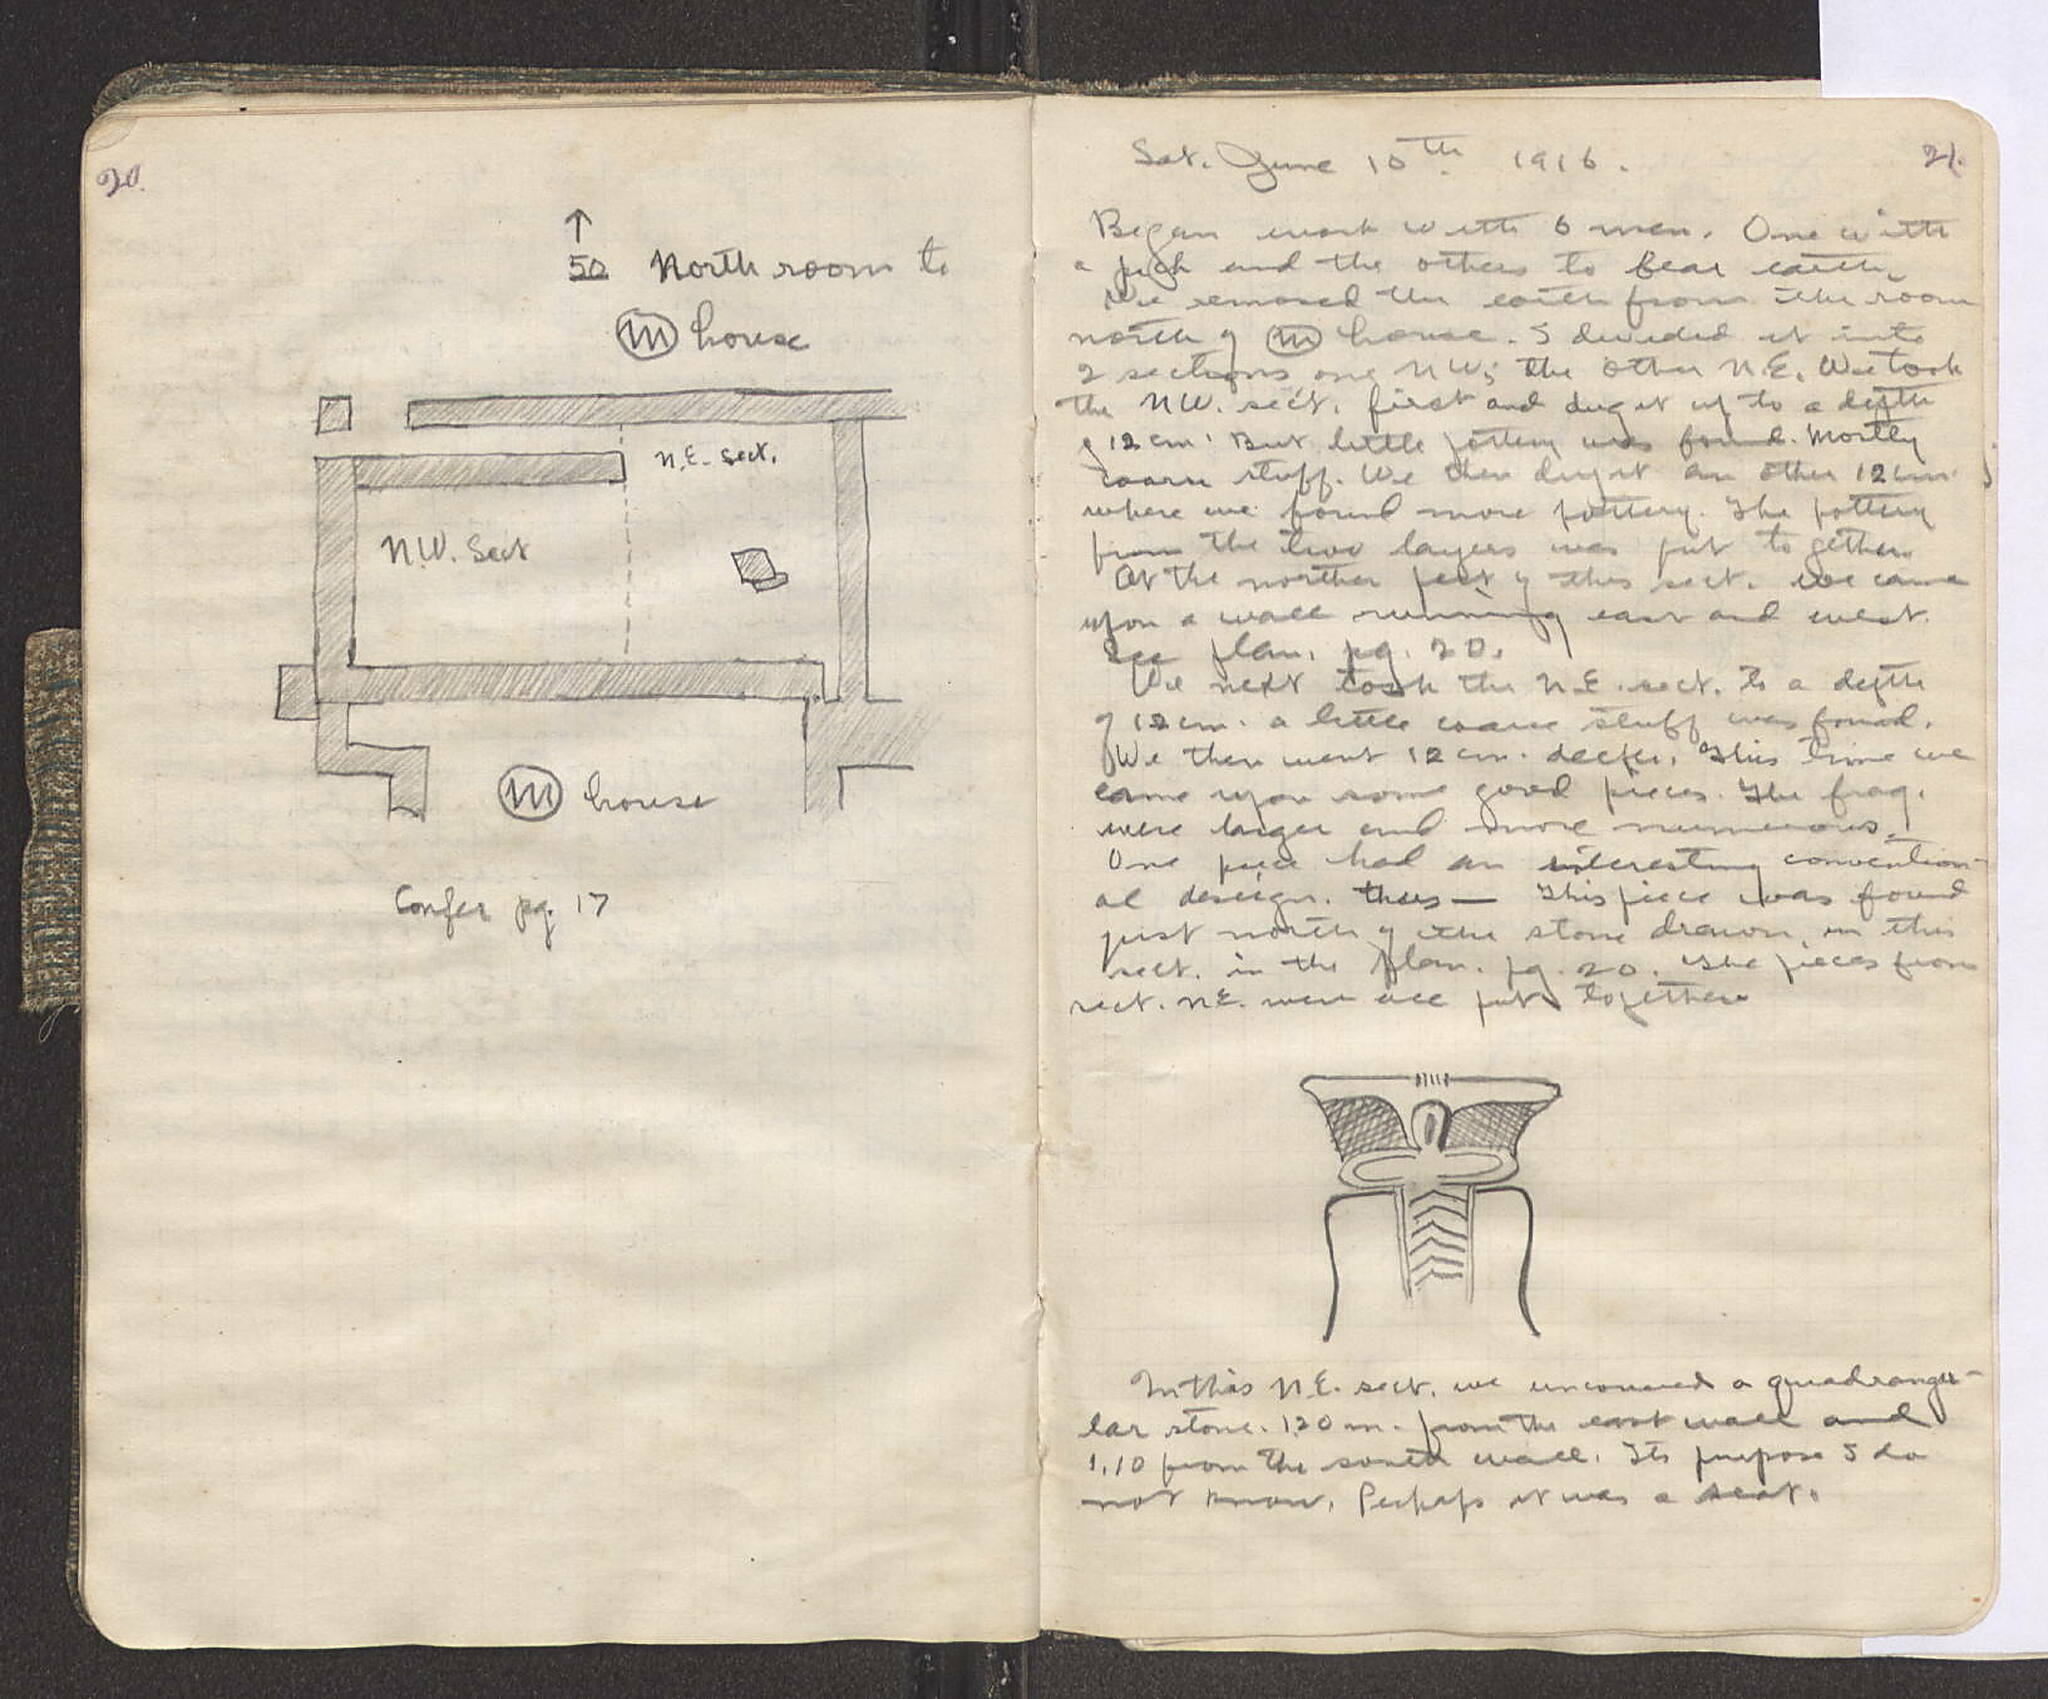 20.
↑
50 North room to
M house
N.E. Sect.
N.W. Sect
M house
Confer pg. 17
Sat. June 10th 1916.
21.
Began work with 6 men. One with
a pick and the others to bear earth.
We removed the earth from the room
north of M house. I divided it into
2 sections one NW; the other N.E. We took
the NW. sect. first and dug it up to a depth
of 12 cm. But little pottery was found. Mostly
coarse stuff. We then dug it an other 12 cm.
where we found more pottery. The pottery
from the two layers was put together.
At the norther part of this sect. we came
upon a wall running east and west.
See plan. pg. 20.
We next took the N.E. sect. To a depth
of 12 cm. a little coarse stuff was found.
We then went 12 cm. deeper. This time we
came upon some good pieces. The frag.
were larger and more numerous.
One piece had an interesting convention-
al design. thus — This piece was found
just north of the stone drawn, in this
sect. in the plan. pg. 20. The pieces from
sect. NE. were all put together
In this N.E. sect. we uncovered a quadrangu-
lar stone. 1.20 m. from the east wall and
1.10 from the south wall. Its purpose I do
not know. Perhaps it was a seat.